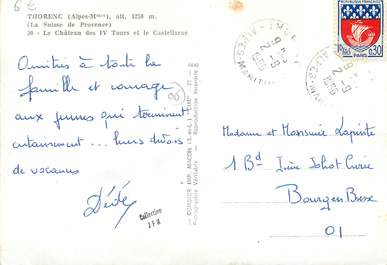 6 €
THORENC (Alpes-Mmes), alt. 1250 m.
(La Suisse de Provence)
20 - Le Château des IV Tours et le Castellaras
Amitiés à toute la
famille et courage
aux jeunes qui terminent
certainement... leurs devoirs
de vacances
Dédé
Collection
J F M
COMBIER IMP. MACON
REPUBLIQUE FRANÇAISE
0,30
PARIS
Madame et Monsieur Lapinte
1 Bd Irène Joliot Curie
Bourg en Bresse
01